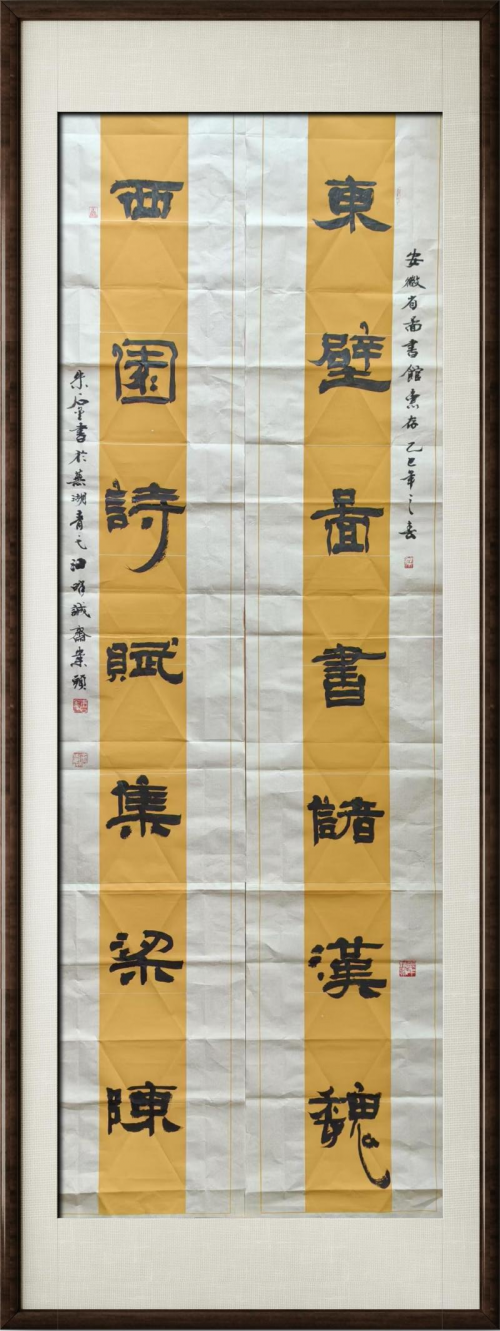 安徽省圖書館惠存 乙巳年之春
東壁圖書儲漢魏
西園詩賦集梁陳
朱 書於蕪湖青弋江 誠齋案頭